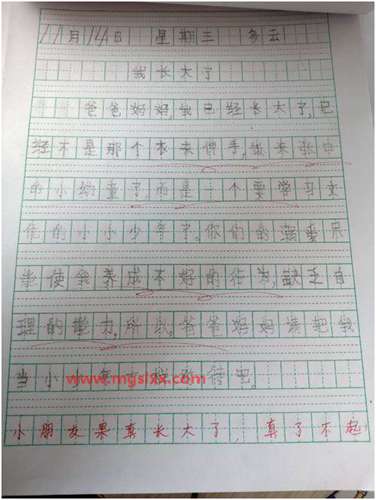 11月14日 星期三 多云
我长大了
爸爸妈妈,我已经长大了,已
经不是那个衣来伸手,饭来张口
的小幼童了而是一个要学习文
作的小小少年了,你们的溺爱只
会使我养成不好的行为,缺乏自
理的能力,所以,爸爸妈妈请把我
当小
www.mgslxx.com
小朋友果真长大了,真了不起